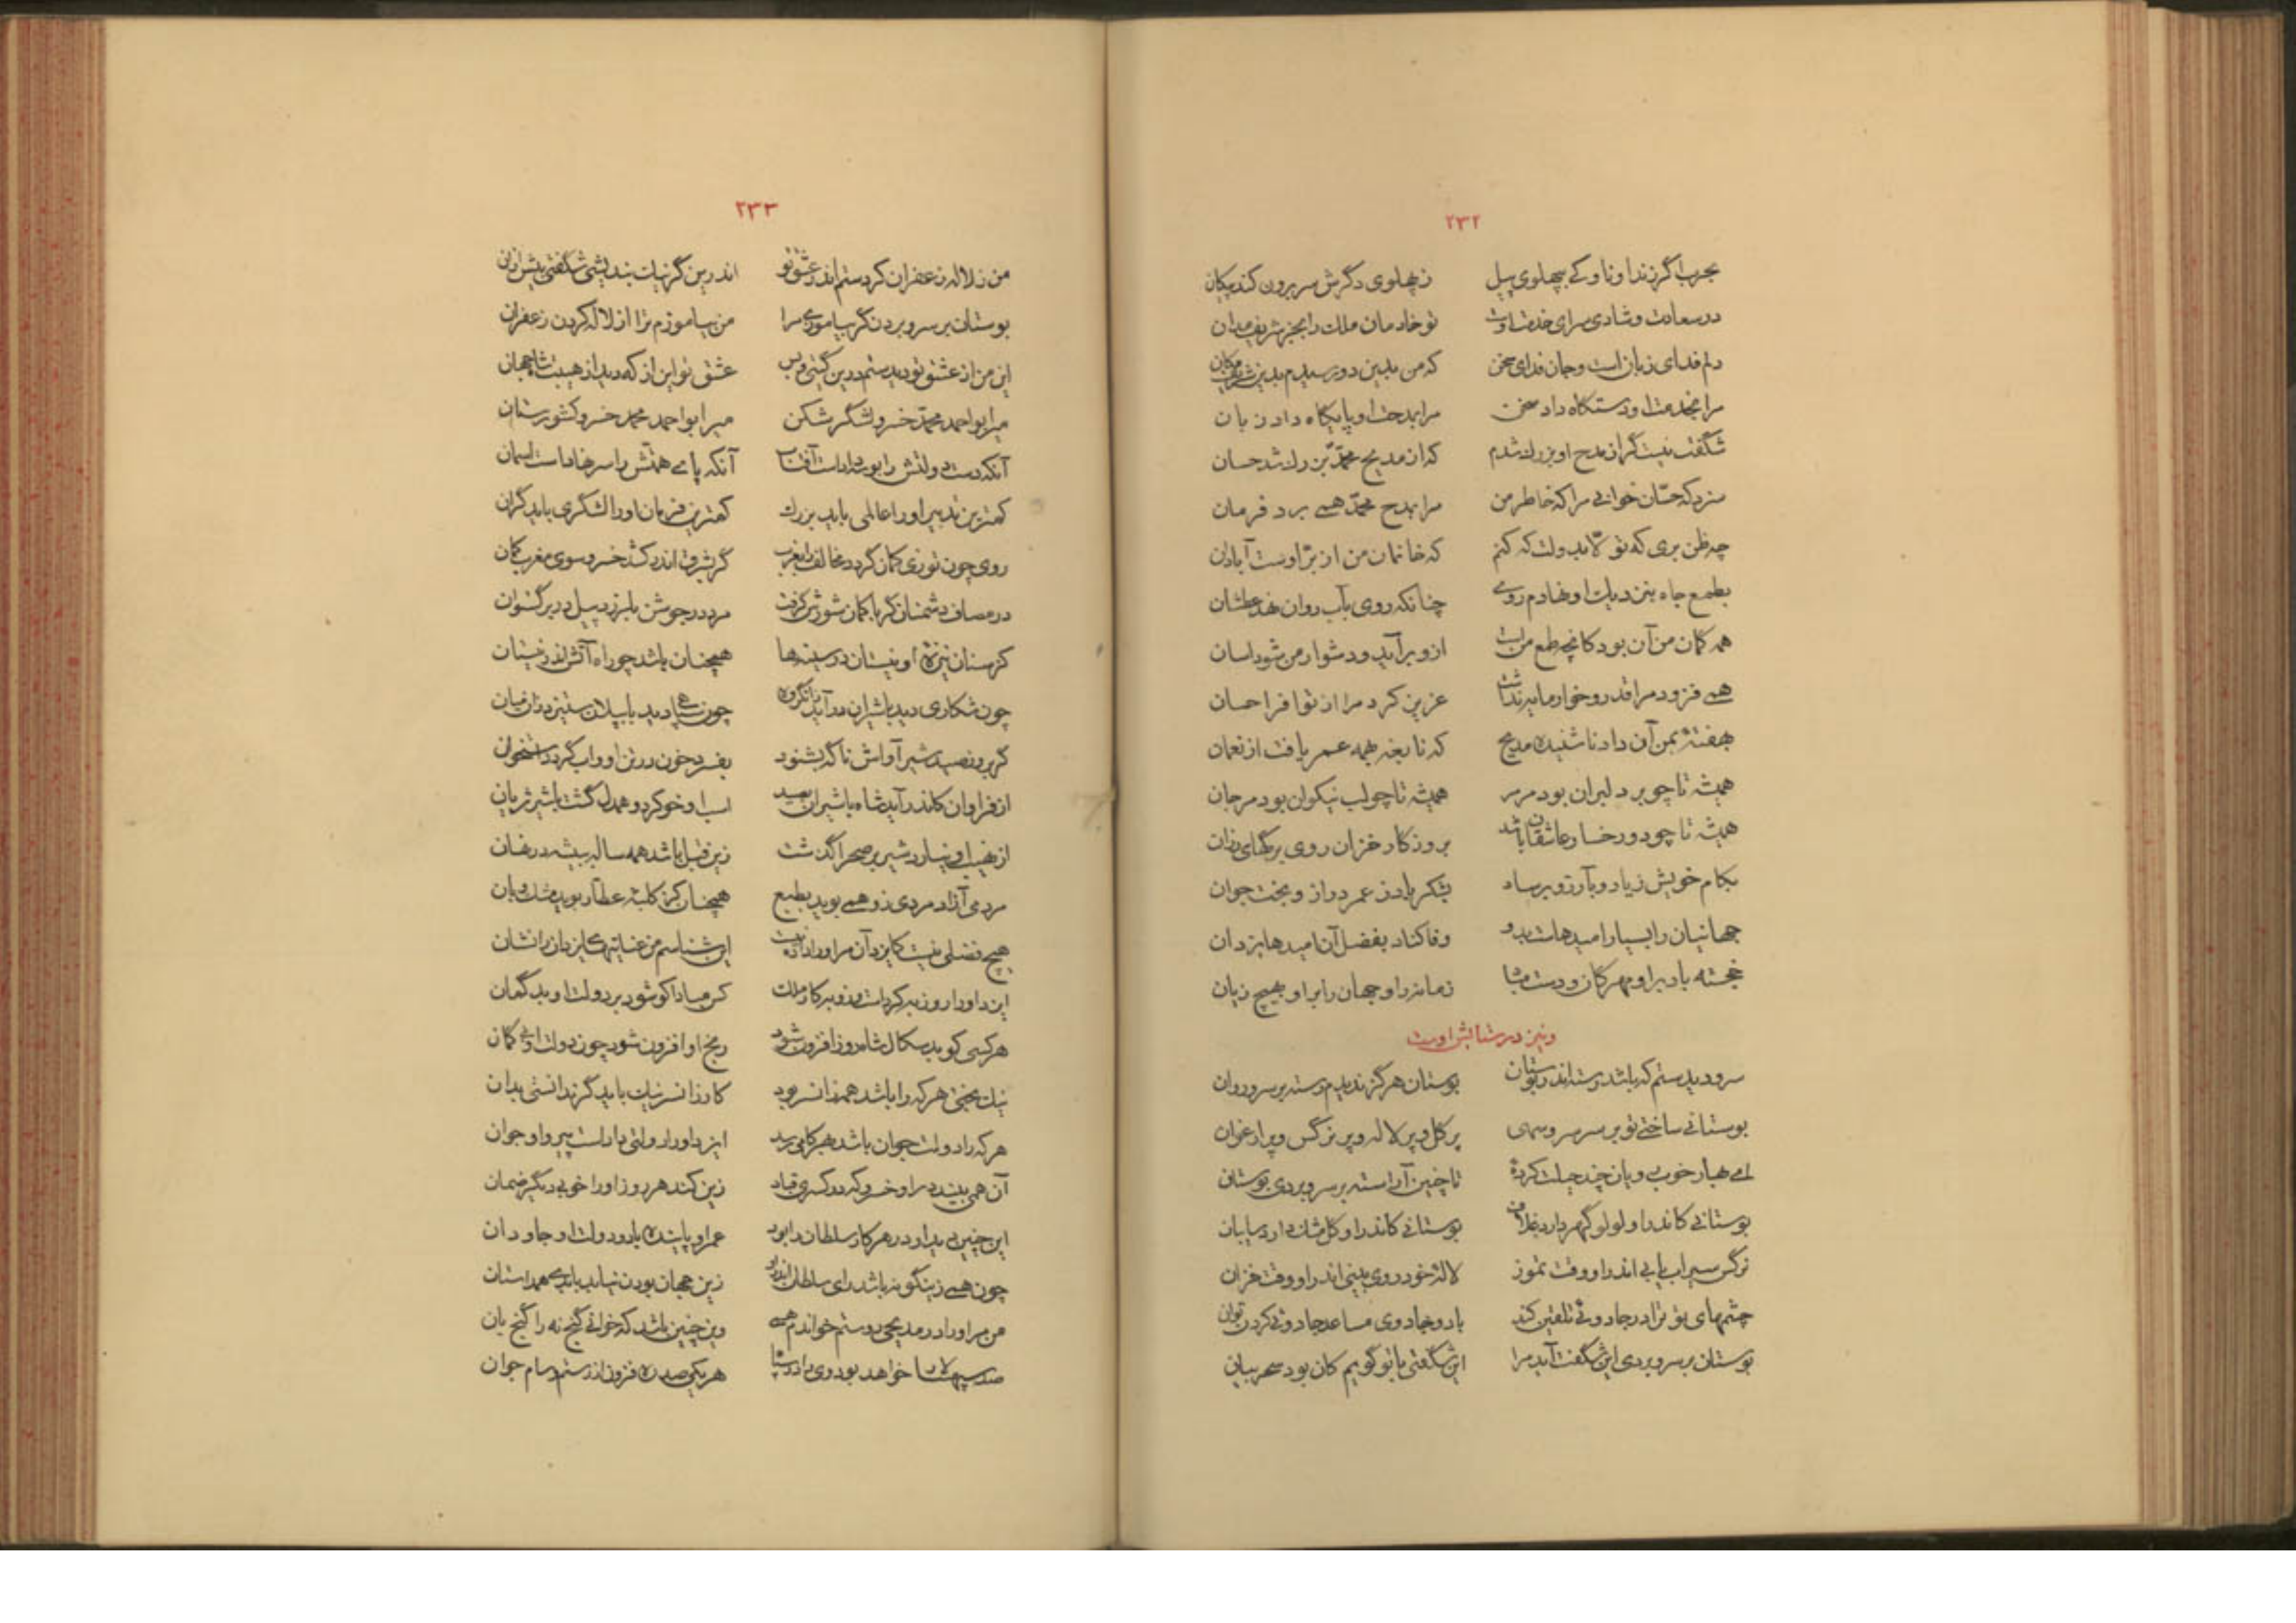 ۲۳۲
بحرب اگر زند او ناوکے بپهلوی پیل زپهلوی دگرش سر برون کند پیکان
در سعادت و شادی سرای خدمت اوست تو خادمان ملک را بجز شریف مدان
دلم فدای زبان است و جان فدای سخن که من بدین دو رسیدم بدین شریف مکان
مرا بخدمت او دستگاه داد سخن مرا بمدحت او پایگاه داد زبان
شگفت نیست گر از مدح او بزرگ شدم که از مدیح محمّد بزرگ شد حسان
سزد که حسّان خوانی مرا که خاطر من مرا بمدح محمّد همے برد فرمان
چه ظن بری که تو لّا بدولت که کنم که خانمان من از برّ اوست آبادان
بطمع جاه بنزدیک او نهادم روے چنانکه روی بآب روان نهد عطشان
همه گمان من آن بود کانچه طمع من است ازو برآید و دشوار من شود اسان
همے فزود مرا قدر و خوار مایه نداشت عزیز کرد مرا از توافر احسان
بهفتۀ بمن آن داد ناشنیده مدیح که نابغه بهمه عمر یافت از نعمان
همیشه تا چو بر دلبران بود مرمر همیشه تا چو لب نیکوان بود مرجان
همیشه تا چو دو رخسار عاشقان باشد بروزگار خزان روی برگهای رزان
بکام خویش زیاد و بآرزو برساد بشکر باد ز عمر دراز و بخت جوان
جهانیان را بسیار امیدهاست بدو وفا کناد بفضل آن امیدها یزدان
خجسته باد براو مهرگان و دست مباد زمانه را و جهان را براو بهیچ زیان
و نیز در ستایش اوست
سرو دیدستم که باشد رسته اندر بوستان بوستان هرگز ندیدم رسته بر سرو روان
بوستانے ساختے تو بر سر سرو سهی پر گل و پر لاله و پر نرگس و پر ارغوان
اے بهار خوب روی آن چند حیلت کردۀ تا چنین آراسته بر سرو بردی بوستان
بوستانی کاندر او لولو گهر دارد غلاف بوستانے کاندر او گل مشک دارد سایبان
نرگس سیراب یابی اندر او وقت تموز لالۀ خود روی بینی اندر او وقت خزان
چشمهای تو ترا در جادوئے تلقین کند با دو جادوی مساعد جادوئی کردن توان
بوستان بر سرو بردی این شگفت آید مرا این شگفتی با تو گویم کان بود سحر بیان
۲۳۳
من ز لاله زعفران کردستم اندر عشق تو اندرین گر نیک بندیشی شگفتی بیش از ان
بوستان بر سرو بردن گر بیاموزے مرا من بیاموزم ترا از لاله کردن زعفران
این من از عشق تو دیدستم درین گیتی و بس عشق تو این از که دید از هیبت شاه جهان
میر ابو احمد محمّد خسرو لشگر شکن میر ابو احمد محمد خسرو کشورستان
آنکه دست دولتش را بوسه دادست آفتاب آنکه پاے همتش را سر نهادست آسمان
کمترین تدبیر او را عالمی باید بزرگ کمترین فرمان او را لشگری باید گران
روی چون توزی کمان گردد مخالف را بغرب گر بشرق اندر کشد خسرو سوی مغرب کمان
در مصاف دشمنان گر با کمان شورش گرفت مرد در جوشن بلرزد پیل در برگستوان
کز سنان نیزۀ او نیستان در سینه‌ها همچنان باشد چو راه آتش اندر نیستان
چون شکاری دید باشیران درآید زانگروه چون سپاه دید با پیلان ستیزد زان میان
گر بروز صید شیر آواش ناگه بشنود بفسرد خون در تن او و آب گردد استخوان
از فراوان کاندر آید شاه باشیران بصید اسب او خو کرد و همدل گشت باشیر ژیان
از نهیب او نیارد شیر بر صحرا گذشت زین قبل باشد همه ساله ببیشه در نهان
مردمی آزاد مردی زو همے بوید بطبع همچنان کز کلبۀ عطّار بوید مشک و بان
هیچ فضلی نیست کایزد آن مر او را داده نیست این شناسم من عنایتهای یزدان را نشان
ایزد او را روز به کردست و روز به کار ملک کز مبادا کو شود بر دولت او بدگمان
هر کسی کو بد سگال شاه روز افزون شود رنج او افزون شود چون دولت او بی گمان
نیک بختی هر که را باشد همه زانسر بود کار زانسر نیک باید گر ندانستی بدان
هر که را دولت جوان باشد بهر کامی رسد ایزد او را دولتی دادست پیر و او جوان
آن همی بیند در او خسرو که در کسری قباد زین کند هر روز او را خوبی دیگر ضمان
این چنین بیند او در هر کار سلطان را بود عمر او پاینده باد و دولت او جاودان
چون همے زینگونه باشد رای سلطان اندر او زین جهان بودن نباید با بدے همداستان
من مر او را در مدیحی رستم خواندم همے وین چنین باشد که خوانے گنج نه را گنج بان
صد سپهسالار خواهد بود وی را در سپاه هر یکی صد ره فزون از رستم و سام جوان